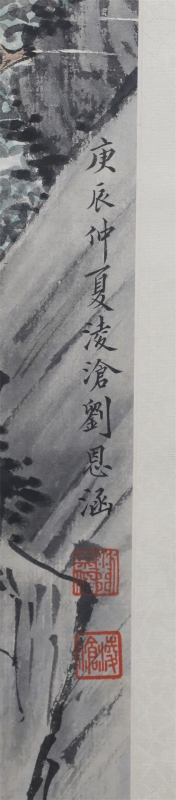 庚辰仲夏淩滄劉恩涵
淩滄